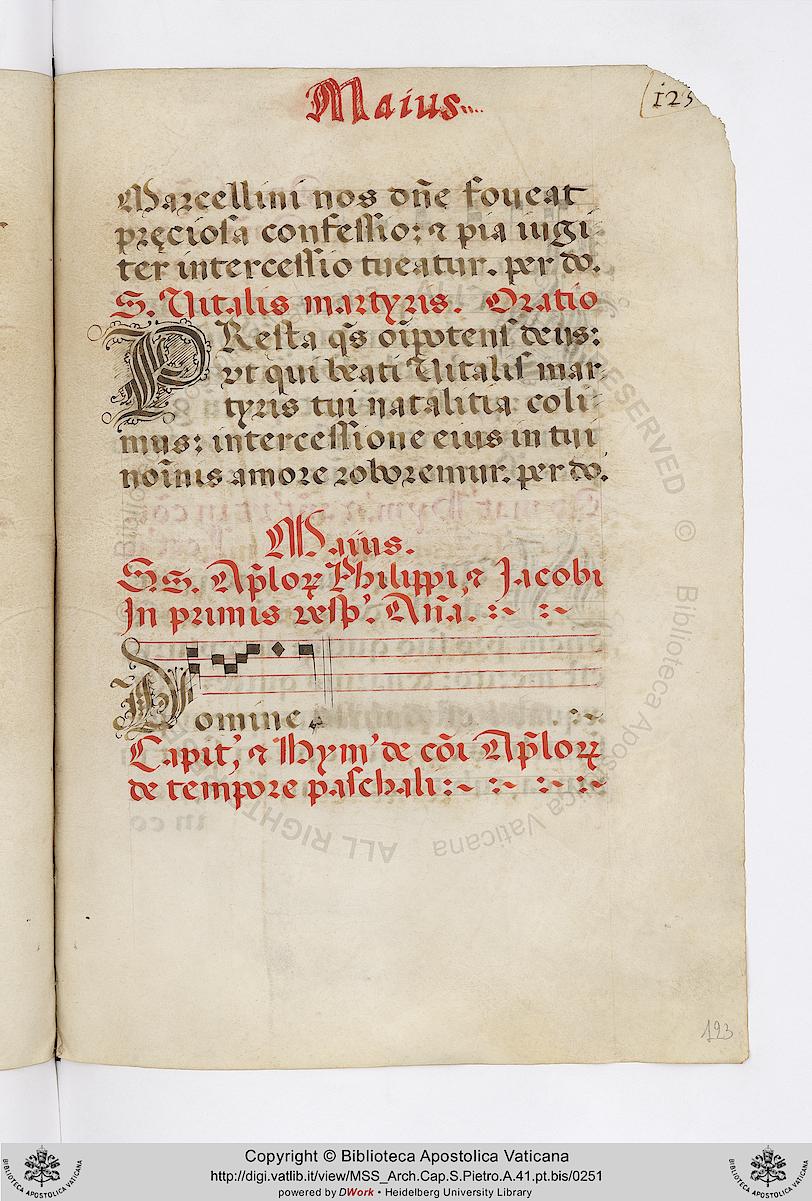 Maius....
125
Marcellini nos dñe foveat
pręciosa confessio: ⁊ pia iugi-
ter intercessio tueatur. per do.
S. Vitalis martyris. Oratio
PResta q̃s oĩpotens deus:
vt qui beati Vitalis mar-
tyris tui natalitia coli-
mus: intercessione eius in tui
noĩnis amore roboremur. per do.
Maius.
SS. Apl̃oꝝ Philippi, ⁊ Jacobi
In primis vesp'. Añа.
Domine
Capit', ⁊ Hym' de cõi Apl̃oꝝ
de tempore paschali:~
123
ALL RIGHTS RESERVED © Biblioteca Apostolica Vaticana
Copyright © Biblioteca Apostolica Vaticana
http://digi.vatlib.it/view/MSS_Arch.Cap.S.Pietro.A.41.pt.bis/0251
powered by DWork • Heidelberg University Library
BIBLIOTECA APOSTOLICA VATICANA
BIBLIOTECA APOSTOLICA VATICANA